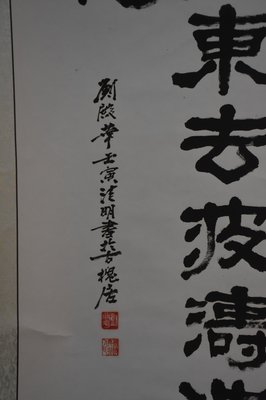 東去波濤
劉殿華壬寅清明書於古槐居